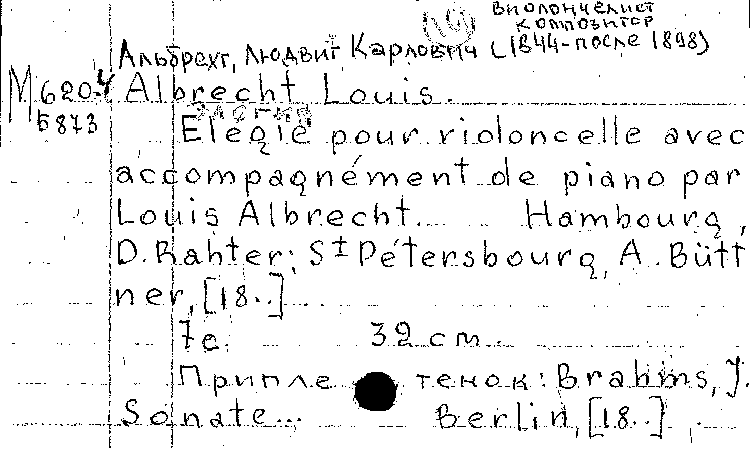 виолончелист
композитор
Альбрехт, Людвиг Карлович (1844-после 1898)
М 620-4
5873
Albrecht Louis.
Элегия
Elegie pour violoncelle avec
accompagnément de piano par
Louis Albrecht. Hambourg,
D. Rahter; St Pétersbourg, A. Bütt
ner, [18..]
7c. 32 cm.
Припле тенок: Brahms, J.
Sonate... Berlin, [18..]